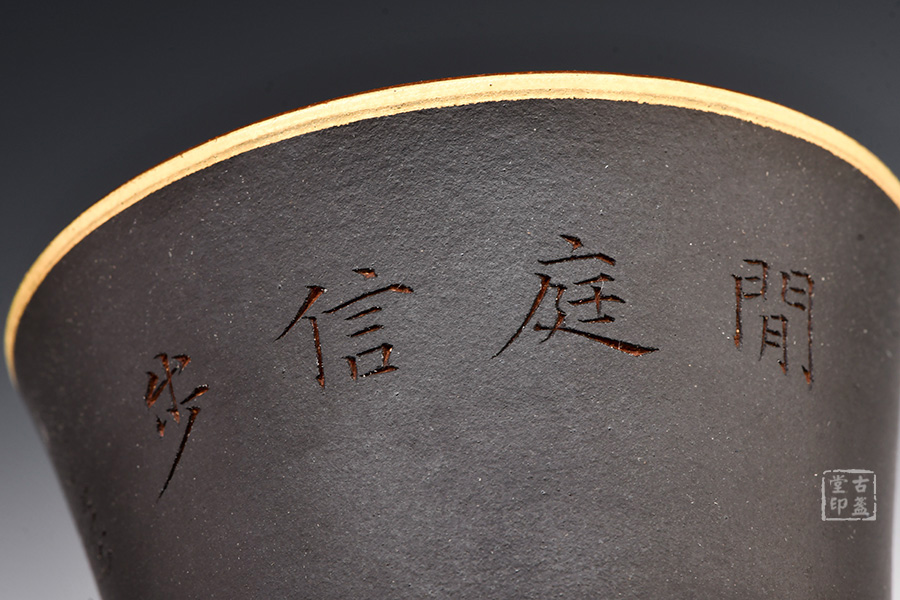 閒庭信步
古盌
堂印